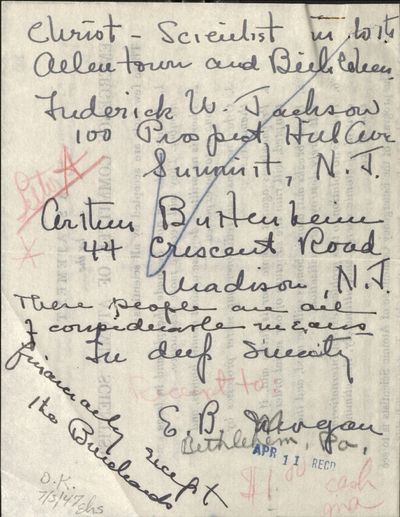 Christ - Scientist in both
Allentown and Bethlehem
Frederick W. Jackson
100 Prospect Hill Ave
Summit, N.J.
List A
Arthur Buttenheim
44 Crescent Road
Madison, N.J.
These people are all
of considerable means
In deep Sincerity
financially except
the Burchards
Receipt to
E. B. Morgan
Bethlehem, Pa.
APR 11 RECD
$1.00 cash
O.K.
7/3/47